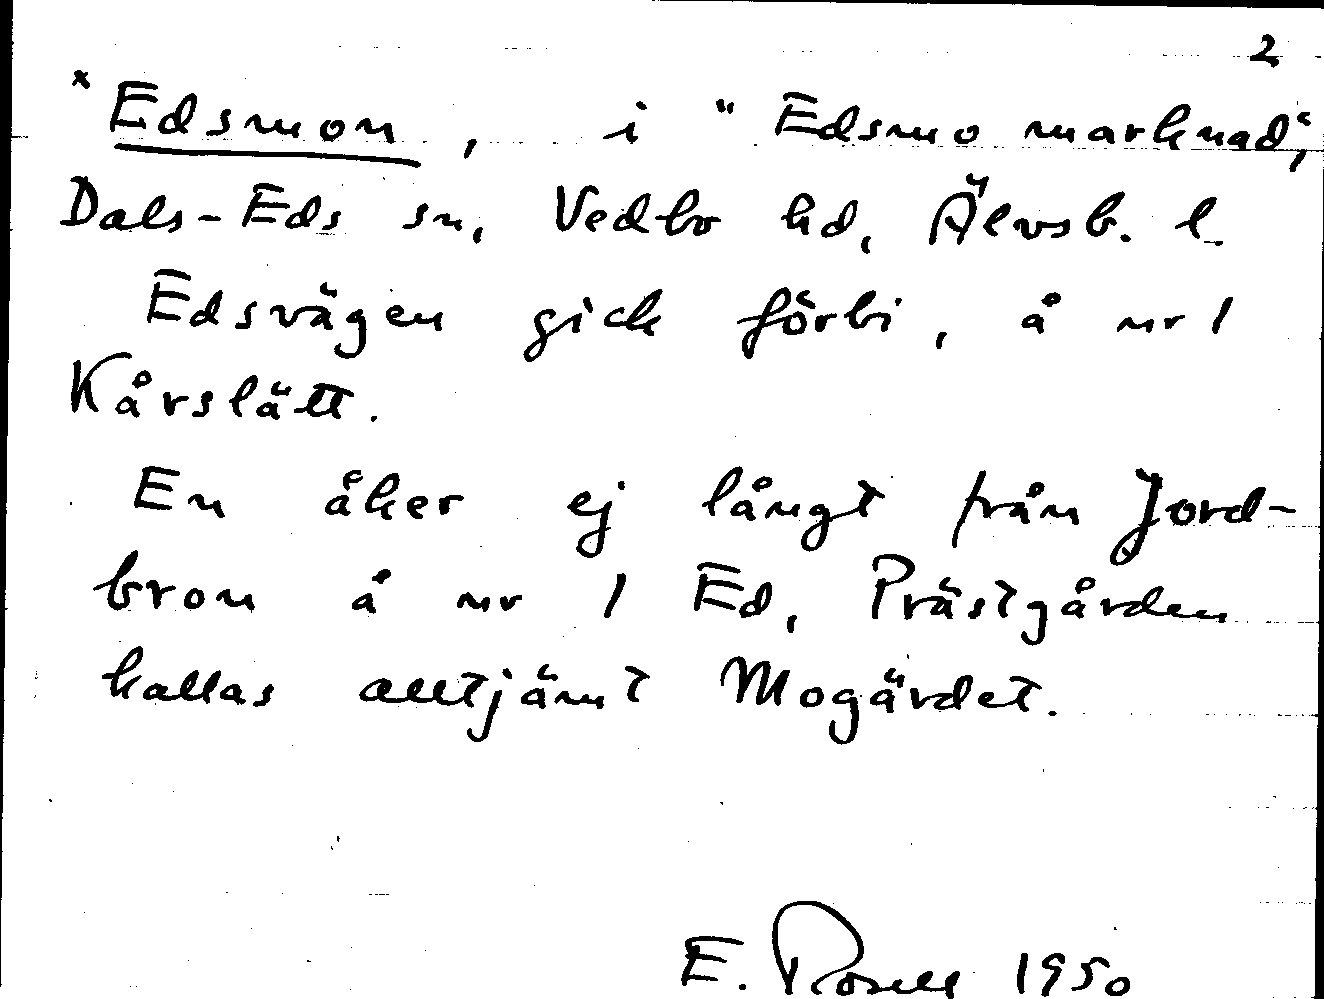 2
x Edsmon, i "Edsmo marknad",
Dals-Eds sn, Vedbo hd, Älvsb. l.
Edsvägen gick förbi, å nr 1
Kårslätt.
En åker ej långt från Jord-
bron å nr 1 Ed, Prästgården
kallas alltjämt Mogärdet.
E. Rosell 1950